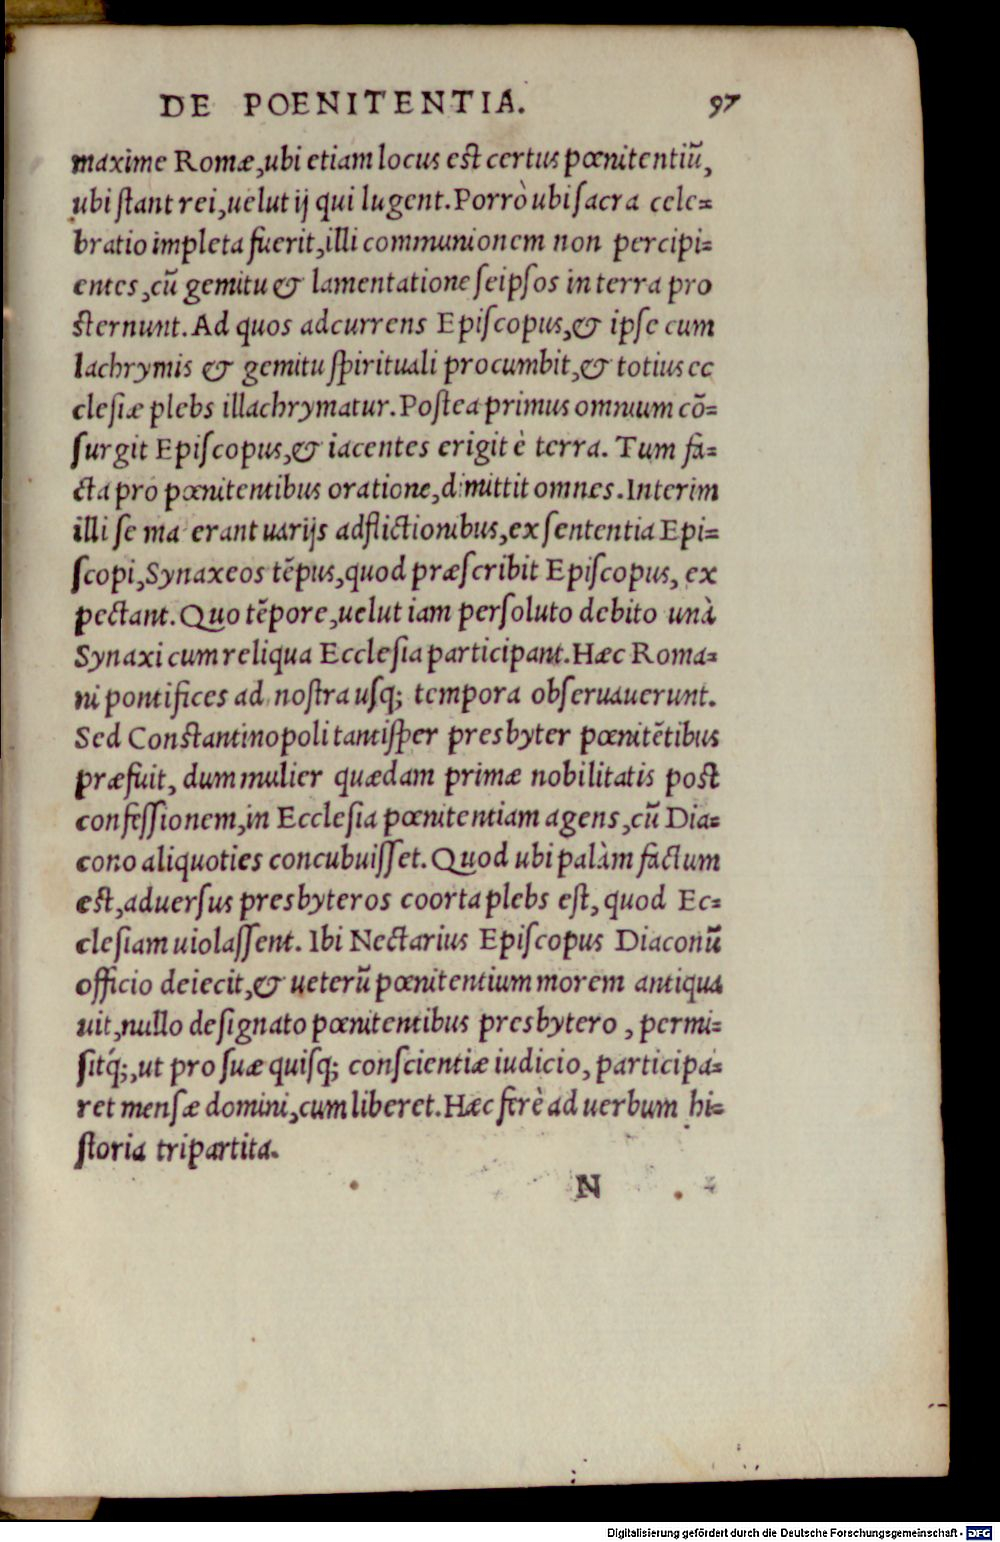 DE POENITENTIA. 97
maxime Romæ, ubi etiam locus est certus pœnitentiũ,
ubi stant rei, uelut ij qui lugent. Porrò ubi sacra cele=
bratio impleta fuerit, illi communionem non percipi=
entes, cũ gemitu & lamentatione seipsos in terra pro
sternunt. Ad quos adcurrens Episcopus, & ipse cum
lachrymis & gemitu spirituali procumbit, & totius ec
clesiæ plebs illachrymatur. Postea primus omnium cõ=
surgit Episcopus, & iacentes erigit è terra. Tum fa=
cta pro pœnitentibus oratione, dimittit omnes. Interim
illi se ma erant uarijs adflictionibus, ex sententia Epi=
scopi, Synaxeos tẽpus, quod præscribit Episcopus, ex
pectant. Quo tẽpore, uelut iam persoluto debito unà
Synaxi cum reliqua Ecclesia participant. Hæc Roma=
ni pontifices ad nostra usq; tempora obseruauerunt.
Sed Constantinopoli tantisper presbyter pœnitẽtibus
præfuit, dum mulier quædam primæ nobilitatis post
confessionem, in Ecclesia pœnitentiam agens, cũ Dia=
cono aliquoties concubuisset. Quod ubi palàm factum
est, aduersus presbyteros coorta plebs est, quod Ec=
clesiam uiolassent. Ibi Nectarius Episcopus Diaconũ
officio deiecit, & ueterũ pœnitentium morem antiqua
uit, nullo designato pœnitentibus presbytero, permi=
sitq́;, ut pro suæ quisq; conscientiæ iudicio, participa=
ret mensæ domini, cum liberet. Hæc ferè ad uerbum hi=
storia tripartita.
N
Digitalisierung gefördert durch die Deutsche Forschungsgemeinschaft - DFG